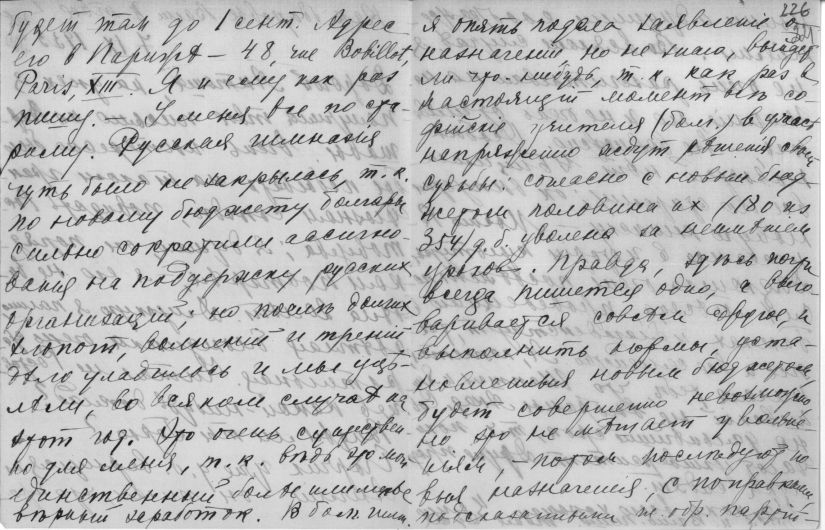 будетъ там до 1 сент. Адрес
его в Парижѣ — 48, rue Bobillot,
Paris, XIII. Я и ему как раз
пишу. — У меня все по ста-
рому. Русская гимназія
чуть было не закрылась, т. к.
по новому бюджету болгары
сильно сократили ассигно-
ванія на поддержку русских
организацій; но послѣ долгих
хлопот, волненій и треній
дѣло уладилось и мы уцѣ-
лѣли, во всяком случаѣ на
этот год. Это очень существен-
но для меня, т. к. вѣдь это мой
единственный болѣе или менѣе
вѣрный заработок. В болг. гимн.
226
я опять подала заявленіе о
назначеніи, но не знаю, выйдет
ли что-нибудь, т. к. как раз в
настоящій момент всѣ со-
фійскіе учителя (болг.) в
напряженно ждут рѣшенія своей
судьбы: согласно с новым бюд-
жетом половина их (180 из
354) д. б. уволена за неимѣнием
уроков. Правда, здѣсь почти
всегда пишется одно, а выго-
варивается совсѣм другое, и
выполнить нормы, уста-
новленныя новым бюджетом,
будет совершенно невозможно
но это не мѣшает увольне-
ніям, — потом послѣдуют но-
выя назначенія, с поправками
подсказанными т. обр. партій-